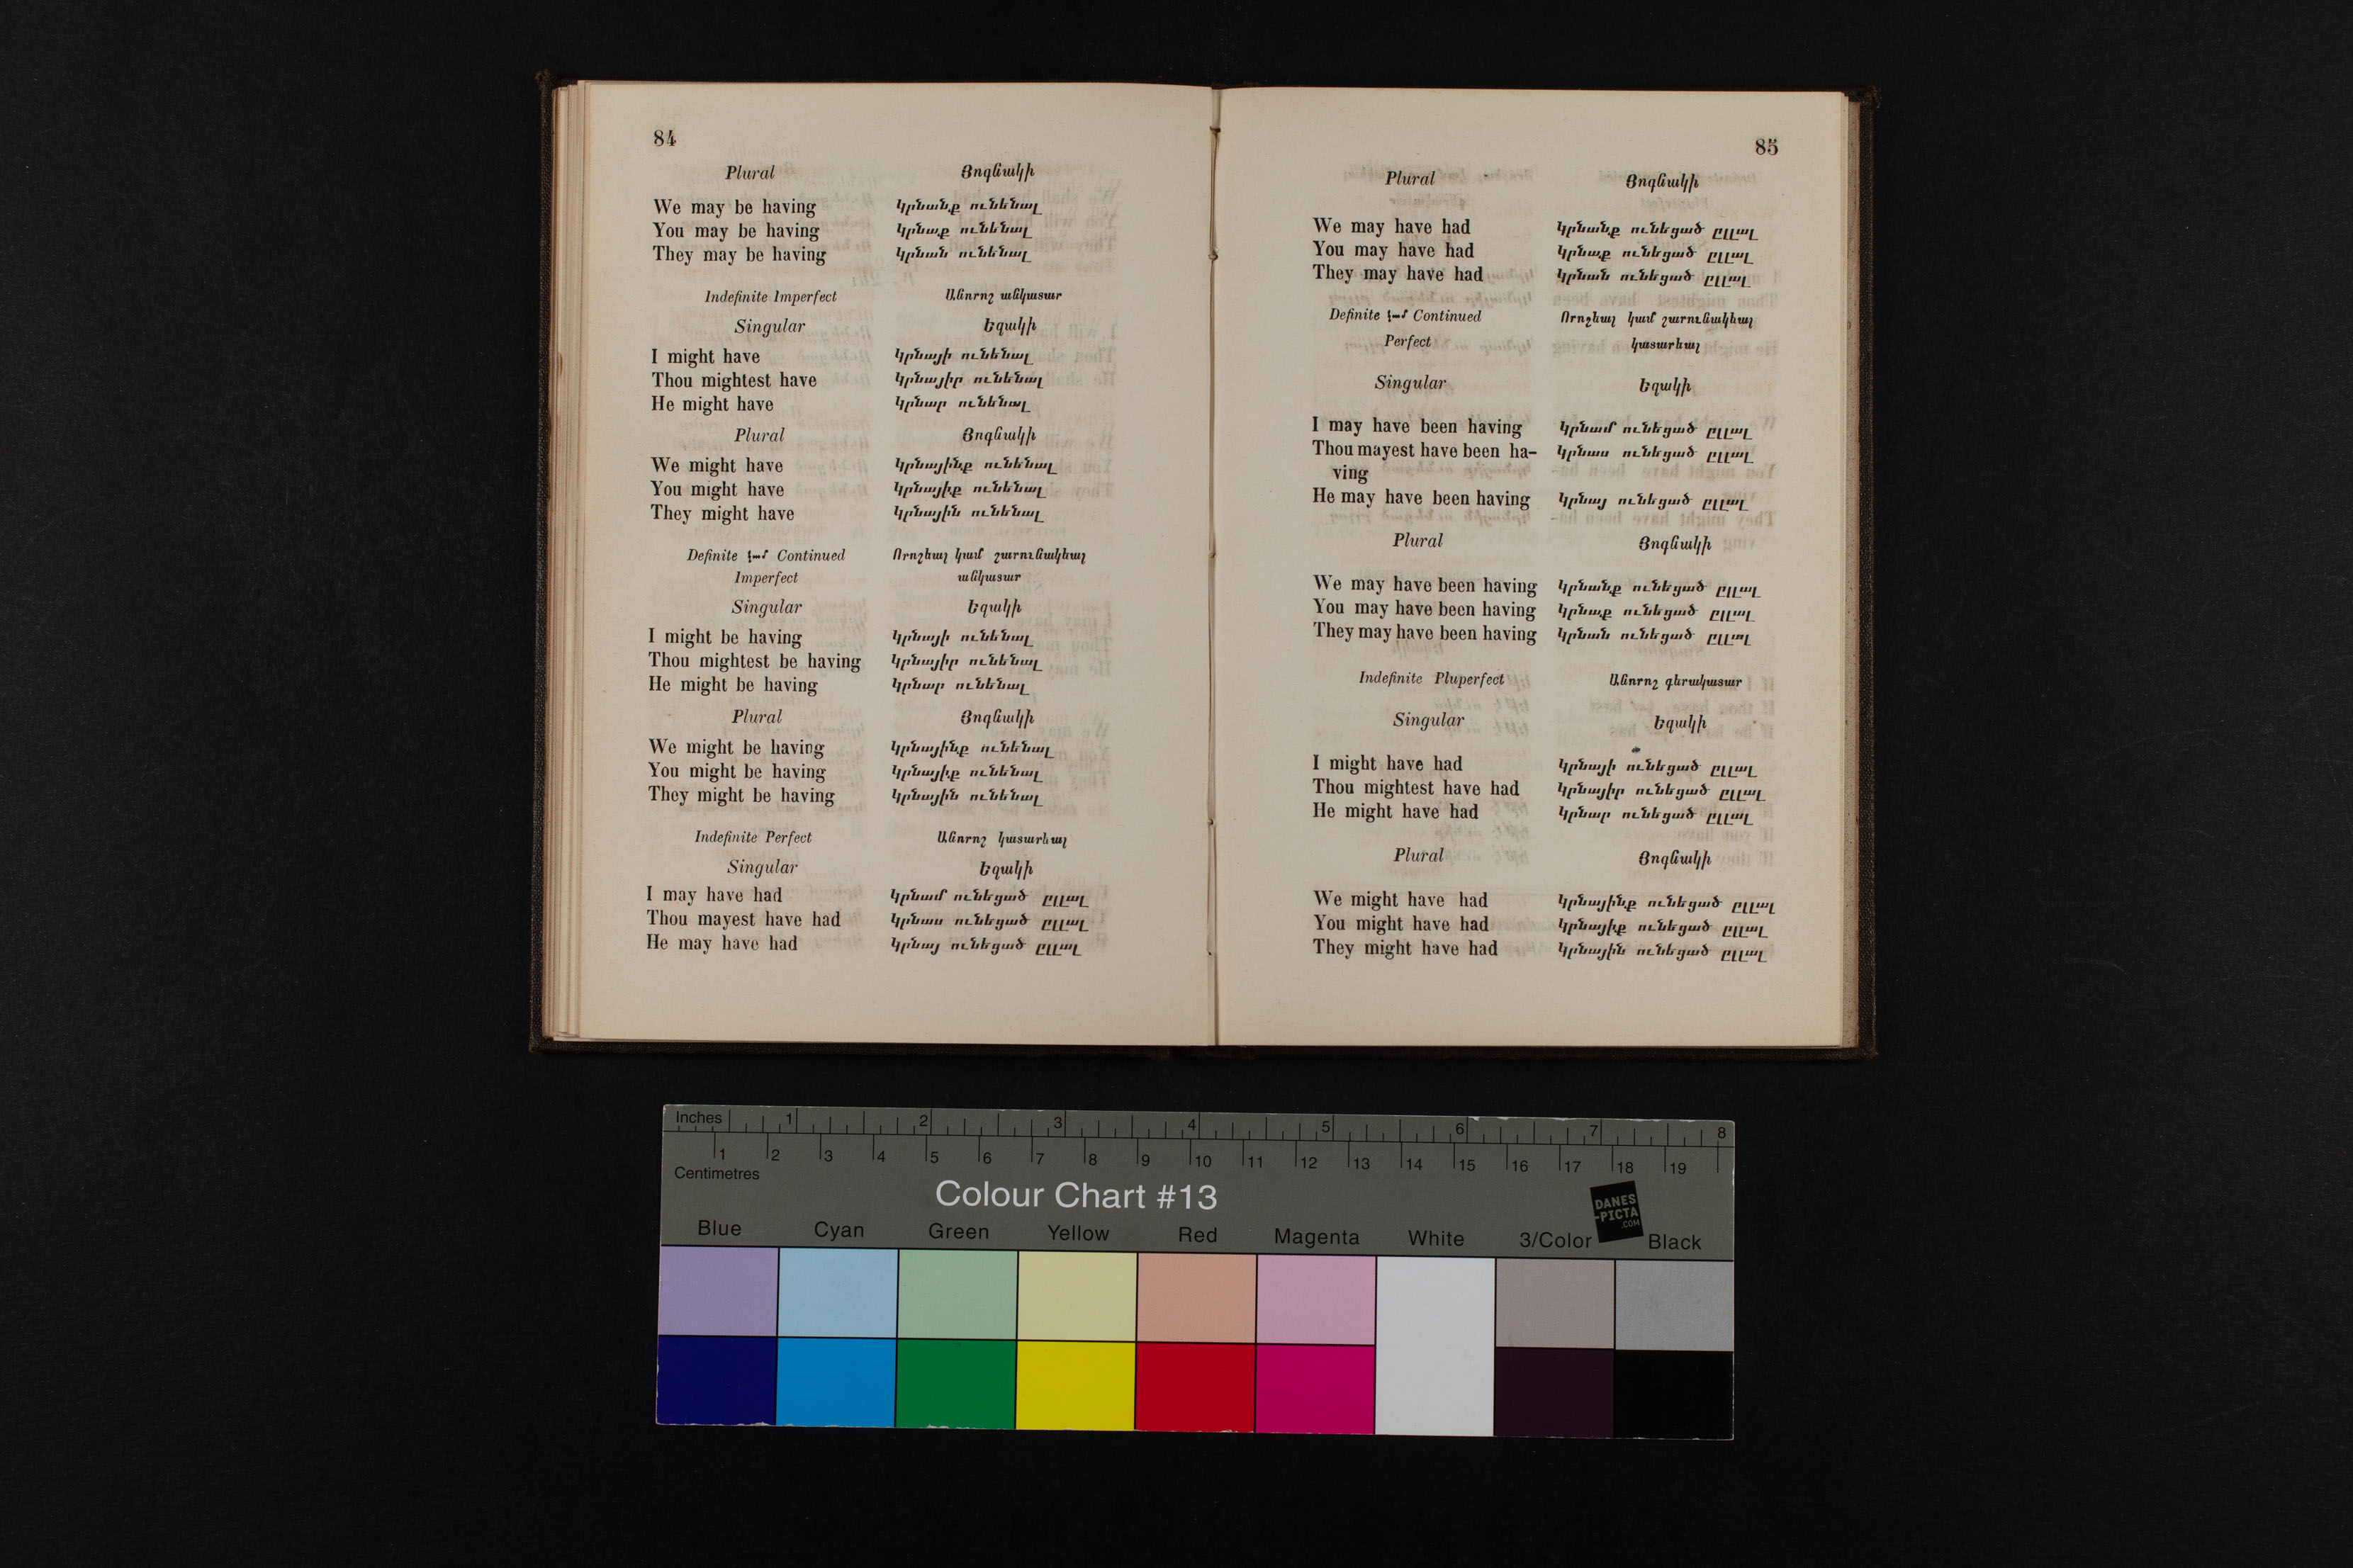 84
Plural Յոգնակի
We may be having կրնանք ունենալ
You may be having կրնաք ունենալ
They may be having կրնան ունենալ
Indefinite Imperfect Անորոշ անկատար
Singular Եզակի
I might have կրնայի ունենալ
Thou mightest have կրնայիր ունենալ
He might have կրնար ունենալ
Plural Յոգնակի
We might have կրնայինք ունենալ
You might have կրնայիք ունենալ
They might have կրնային ունենալ
Definite կամ Continued Որոշեալ կամ շարունակեալ
Imperfect անկատար
Singular Եզակի
I might be having կրնայի ունենալ
Thou mightest be having կրնայիր ունենալ
He might be having կրնար ունենալ
Plural Յոգնակի
We might be having կրնայինք ունենալ
You might be having կրնայիք ունենալ
They might be having կրնային ունենալ
Indefinite Perfect Անորոշ կատարեալ
Singular Եզակի
I may have had կրնամ ունեցած ըլլալ
Thou mayest have had կրնաս ունեցած ըլլալ
He may have had կրնայ ունեցած ըլլալ
85
Plural Յոգնակի
We may have had կրնանք ունեցած ըլլալ
You may have had կրնաք ունեցած ըլլալ
They may have had կրնան ունեցած ըլլալ
Definite կամ Continued Որոշեալ կամ շարունակեալ
Perfect կատարեալ
Singular Եզակի
I may have been having կրնամ ունեցած ըլլալ
Thou mayest have been ha- կրնաս ունեցած ըլլալ
ving
He may have been having կրնայ ունեցած ըլլալ
Plural Յոգնակի
We may have been having կրնանք ունեցած ըլլալ
You may have been having կրնաք ունեցած ըլլալ
They may have been having կրնան ունեցած ըլլալ
Indefinite Pluperfect Անորոշ գերակատար
Singular Եզակի
I might have had կրնայի ունեցած ըլլալ
Thou mightest have had կրնայիր ունեցած ըլլալ
He might have had կրնար ունեցած ըլլալ
Plural Յոգնակի
We might have had կրնայինք ունեցած ըլլալ
You might have had կրնայիք ունեցած ըլլալ
They might have had կրնային ունեցած ըլլալ
Inches 1 2 3 4 5 6 7 8
1 2 3 4 5 6 7 8 9 10 11 12 13 14 15 16 17 18 19
Centimetres
Colour Chart #13
DANES
-PICTA
.COM
Blue Cyan Green Yellow Red Magenta White 3/Color Black